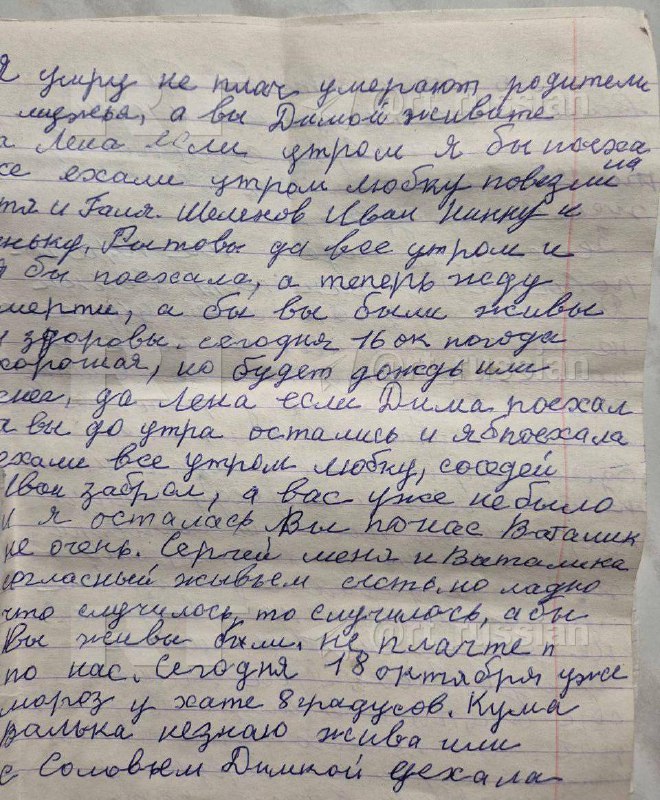 я умру не плач умерают родители
и мужья, а вы Димой живите
а Лена если утром я бы поеха
ла
се ехали утром любку повезли
тя и Галя. Шеленов Иван Нинку и
еньку, Рытовы да все утром и
я бы поехала, а теперь жду
мерти, а бы вы были живы
и здоровы. сегодня 16 ок погода
хорошая, но будет дождь или
снег, да Лена если Дима поехал
а вы до утра остались и я б поехала
ехали все утром любку, соседей
Иван забрал, а вас уже не было
и я осталась Вы по нас Виталик
не очень. Сергей меня и Виталика
огласный жывьем сьесть, но ладно
что случилось, то случилось, абы
Вы живы были, не плачте п
по нас. Сегодня 18 октября уже
мороз у хате 8 градусов. Кума
Валька незнаю жива или
с Соловьем Димкой уехала
@rt_russian
@rt_russian
@rt_russian